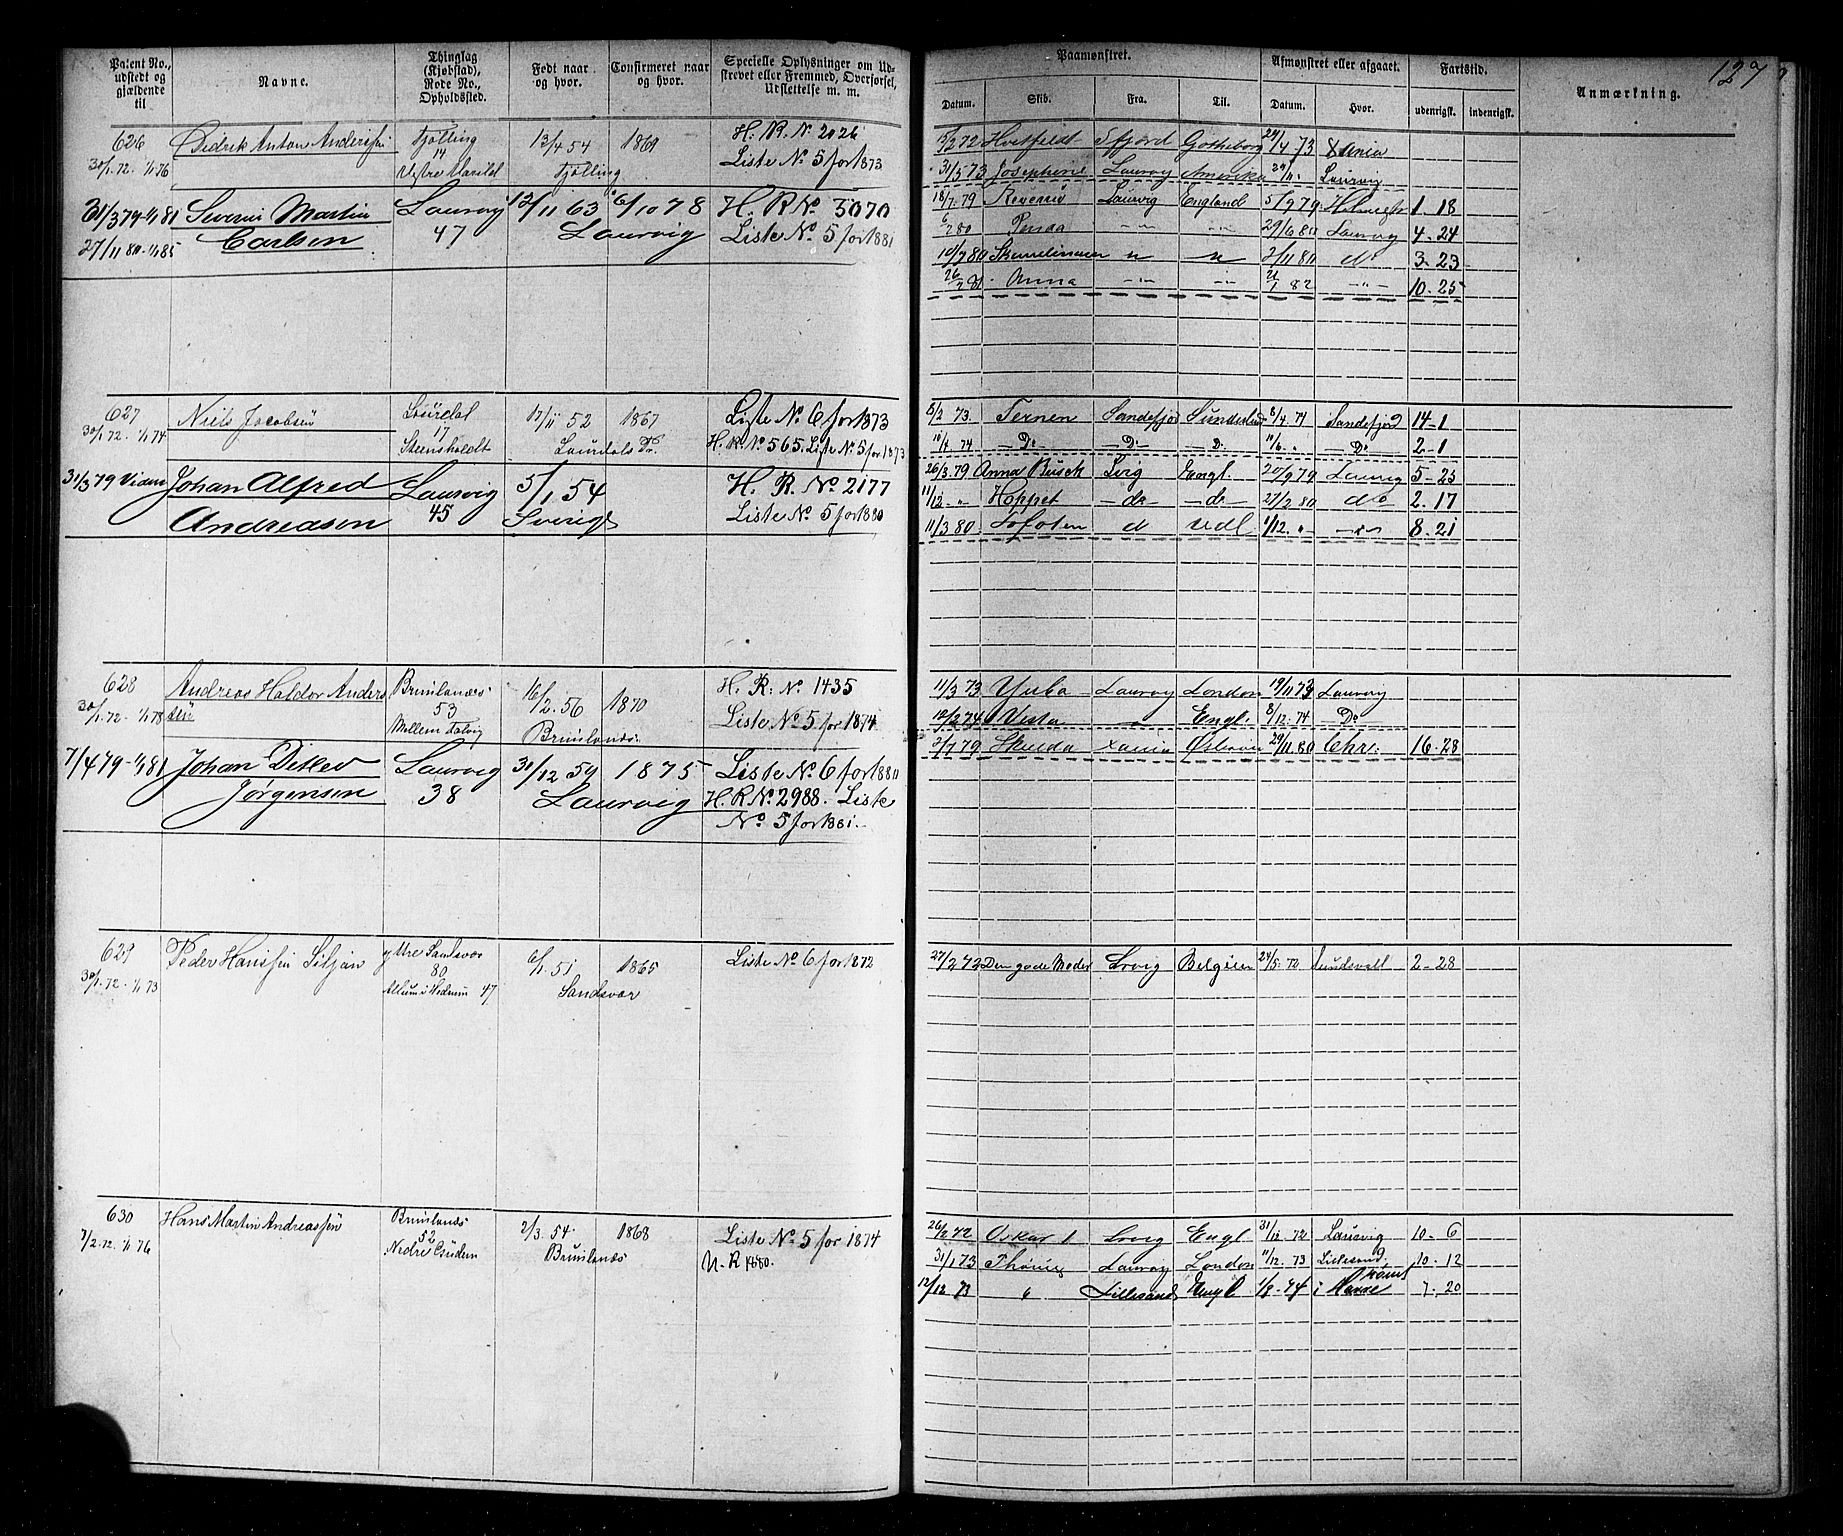 127
Patent No., udstedt og gjældende til
Navne.
Thinglag (Kjøbstad), Rode No., Opholdssted.
Født naar og hvor.
Confirmeret naar og hvor.
Specielle Oplysninger om Udskrevet eller Fremmed, Overførsel, Udslettelse m. m.
Paamønstret.
Afmønstret eller afgaaet.
Fartstid.
Anmærkning.
Datum. Skib. Fra. Til. Datum. Hvor. udenrigsk. indenrigsk.
626 Didrik Anton Anderssen Tjølling 13/4 54 1869 H. R. N. 2026
30/1.72. 1/1 76 14 Tjølling Liste No 5 for 1873
15/2 72 Hvitfeldt Gotheborg 73 Xania
31/5 73 Josephine Laurvig Amerika Laurvig
31/3 79 1/1 81 Severin Martin Laurvig 12/11 63 6/10 78 H. R No. 3070
27/11 80. 1/1 85 Carlsen 47 Laurvig Liste No. 5 for 1881
18/7. 79 Laurvig England 5/9 79 1. 18
80 29/6 80 Laurvig 4. 24
10/7 80 2/11 80 do 3. 23
Anna 82 10. 25
627 Niels Jacobsen Laurdal 17/11 52 1867 Liste No 6 for 1873
30/1. 72. 1/1 74 17 H. R. No 565. Liste No 5 for 1873
Steensholdt Laurdals
5/2 73. Ternen Sandefjord Sunderland 8/4 74 Sandefjord 14-1
74 Do Do D. Do 2-1
31/3 79 Johan Alfred Laurvig 5/1 54 H. R. No 2177
Andreasen 45 Sverige Liste No. 5 for 1880
26/3. 79 Anna Busch Lvig Engl. 20/9 79 Laurvig 5-25
11/12. „ Hoppet do do 27/2 80 do 2. 17
11/3 80. Lofoten d udl 1/12. „ 8. 21
628 Andreas Haldor Anders Brunlanæs 16/2. 56 1870 H. R. No 1435
30/1. 72. 1/1 78 sen 53 Brunlanæs. Liste No 5 for 1874
Mellem
11/3 73 Yuba Laurvig London 19/11 73 Laurvig
10/2 74 Vesta Engl. 8/12. 74 Do
7/4 79-1/1 81 Johan Ditlev Laurvig 31/12 59 1875 Liste No. 6 for 1880
Jørgensen 38 Laurvig H. R No. 2988. Liste
No. 5 for 1881.
2/7 79 Skulda Xania 29/11. 80 Chr: 16-28
629 Peder Hanssen Siljan ytre Sandsvær 6/1. 51 1865 Liste No. 6 for 1872
30/1. 72. 1/1 73 80 Sandsvær
i Hedrum 47
27/2 72 Den gode Moder Lrvig Belgien 24/5. 72 Sundsvall 2-28
630 Hans Martin Andreassen Brunlanæs 2/3. 54 1868 Liste No 5 for 1874
7/2. 72. 1/1 76 52 Brunlanæs U. R 1880.
Nedre
26/2 72 Oskar I Lrvig Engl 31/12 72 Laurvig 10. 6
31/1 73 Laurvig London 11/12. 73 Lillesand 10. 12
12/12 73 „ Lillesand Engl 1/8. 74 i 7. 20